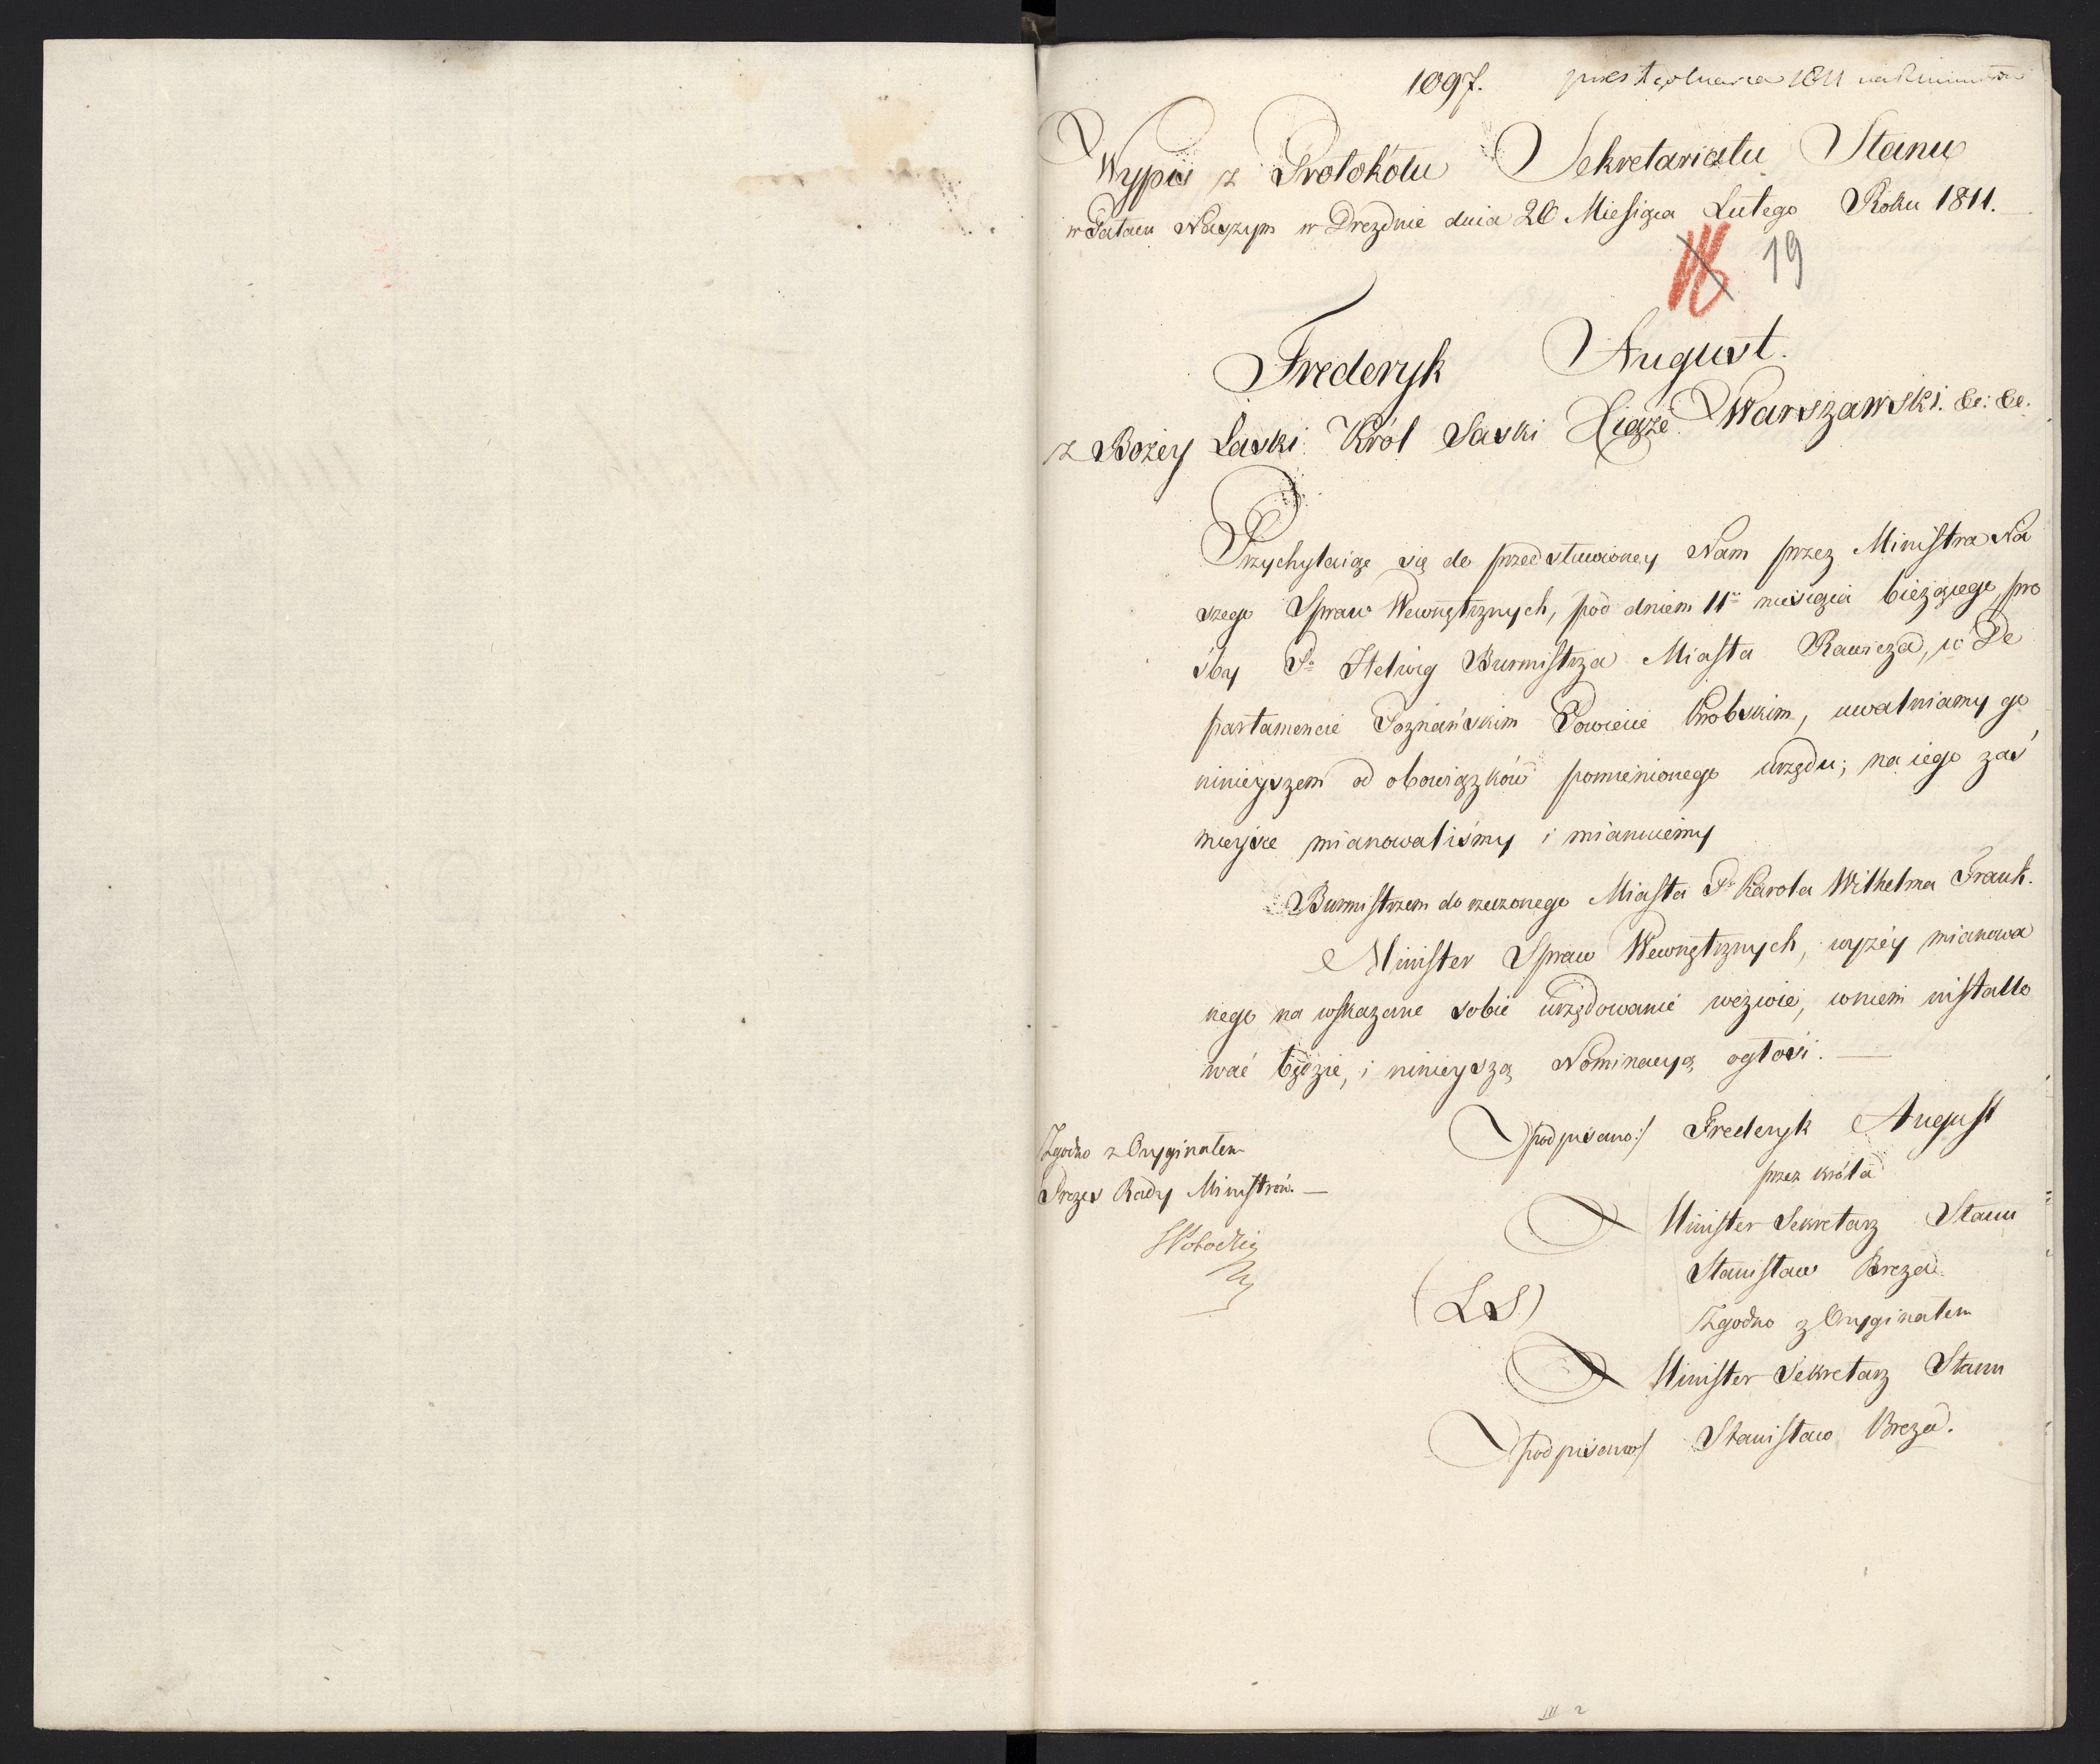 1097.
1811
Wypis z Protokółu Sekretariatu Stanu
w Pałacu Naszym w Dreznie dnia 20 Miesiąca Lutego Roku 1811.
19
Frederyk August.
z Bożey Łaski Król Saski Xiąże Warszawski. &c: &c:
Przychylaiąc się do przedstawioney Nam przez Ministra Na
szego Spraw Wewnętrznych, pod dniem 11ᵐ miesiąca bieżącego, pro
śby Pª Helwig Burmistrza Miasta Rawicza, w De
partamencie Poznańskim Powiecie Krobskim, uwalniamy go
ninieyszem od obowiązków pomienionego urzędu; na iego zaś
mieysce mianowaliśmy i mianuiemy
Burmistrzem do rzeczonego Miasta Pª Karola Wilhelma Frank.
Minister Spraw Wewnętrznych, wyżey mianowa
nego na wskazane sobie urzędowanie wezwie, w niem installo
wać będzie, i ninieyszą Nominacyą ogłosi.
podpisano:/ Frederyk August
przez króla
Minister Sekretarz Stanu
Stanisław Breza
(LS)
Zgodno z Oryginałem
Minister Sekretarz Stanu
podpisano/ Stanisław Breza.
Zgodno z Oryginałem
Prezes Rady Ministrów.
III 2